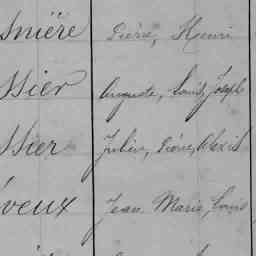 Pierre, Henri
ssier Auguste, Louis, Joseph
ssier Julien, Pierre, Alexis
veux Jean Marie, Louis